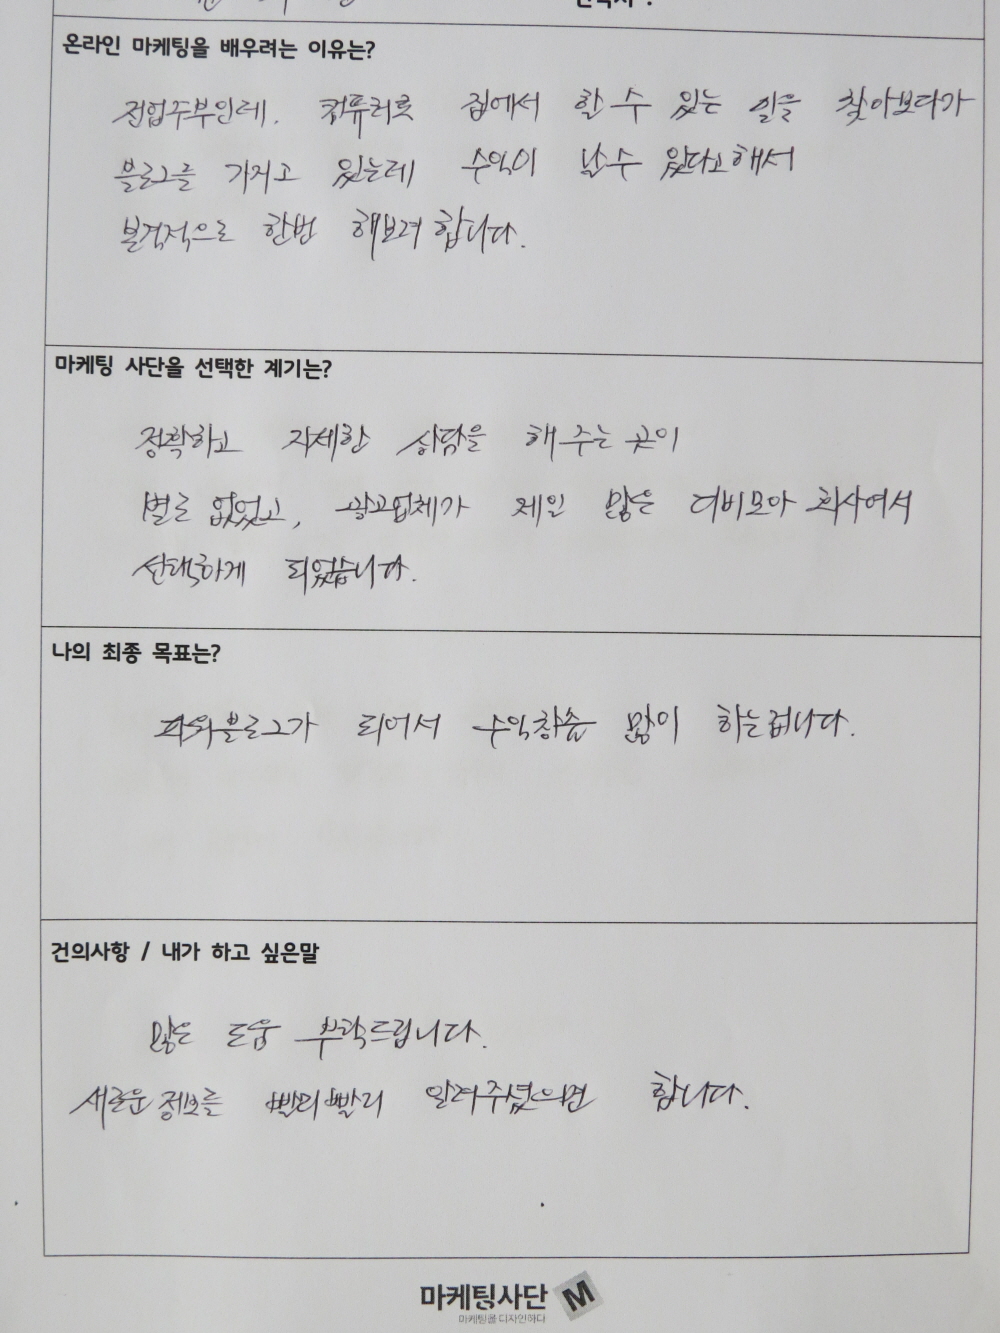 온라인 마케팅을 배우려는 이유는?
전업주부인데. 컴퓨터로 집에서 할 수 있는 일을 찾아보다가
블로그를 가지고 있는데 수익이 날 수 있다고해서
본격적으로 한번 해보려 합니다.
마케팅 사단을 선택한 계기는?
정확하고 자세한 상담을 해 주는 곳이
별로 없었고, 광고업체가 제일 많은 디비모아 회사여서
선택하게 되었습니다.
나의 최종 목표는?
파워블로그가 되어서 수익창출 많이 하는겁니다.
건의사항 / 내가 하고 싶은말
많은 도움 부탁드립니다.
새로운 정보를 빨리빨리 알려주셨으면 합니다.
마케팅사단 M
마케팅을 디자인하다